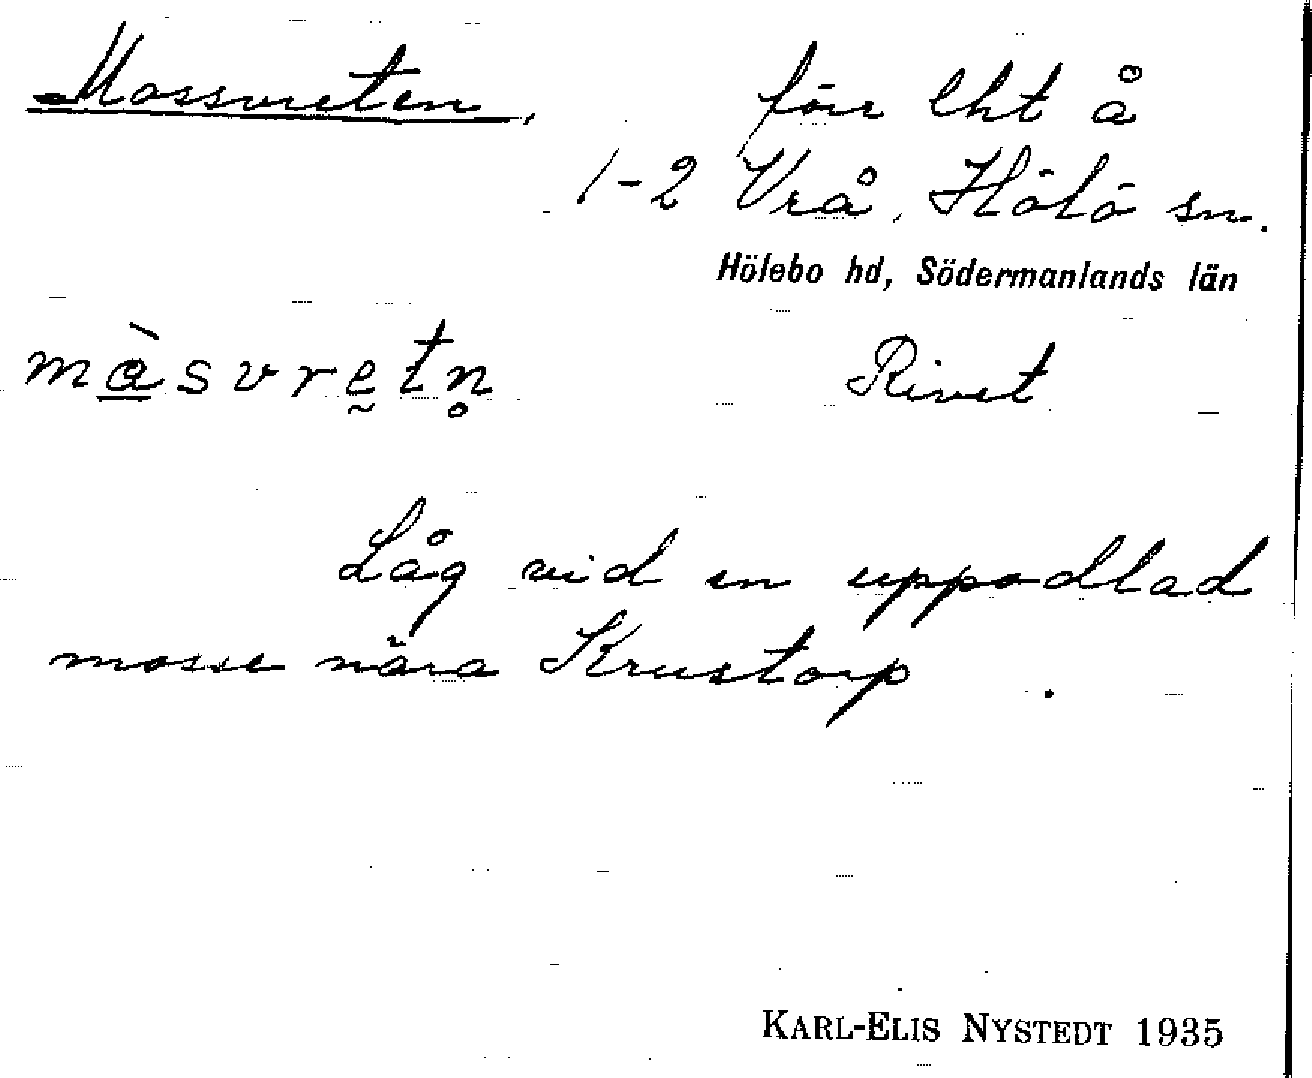 Mossvreten, förr lht å
1-2 Vrå, Hölö sn.
Hölebo hd, Södermanlands län
màsvretn Rivet
Låg vid en uppodlad
mosse nära Krustorp.
KARL-ELIS NYSTEDT 1935